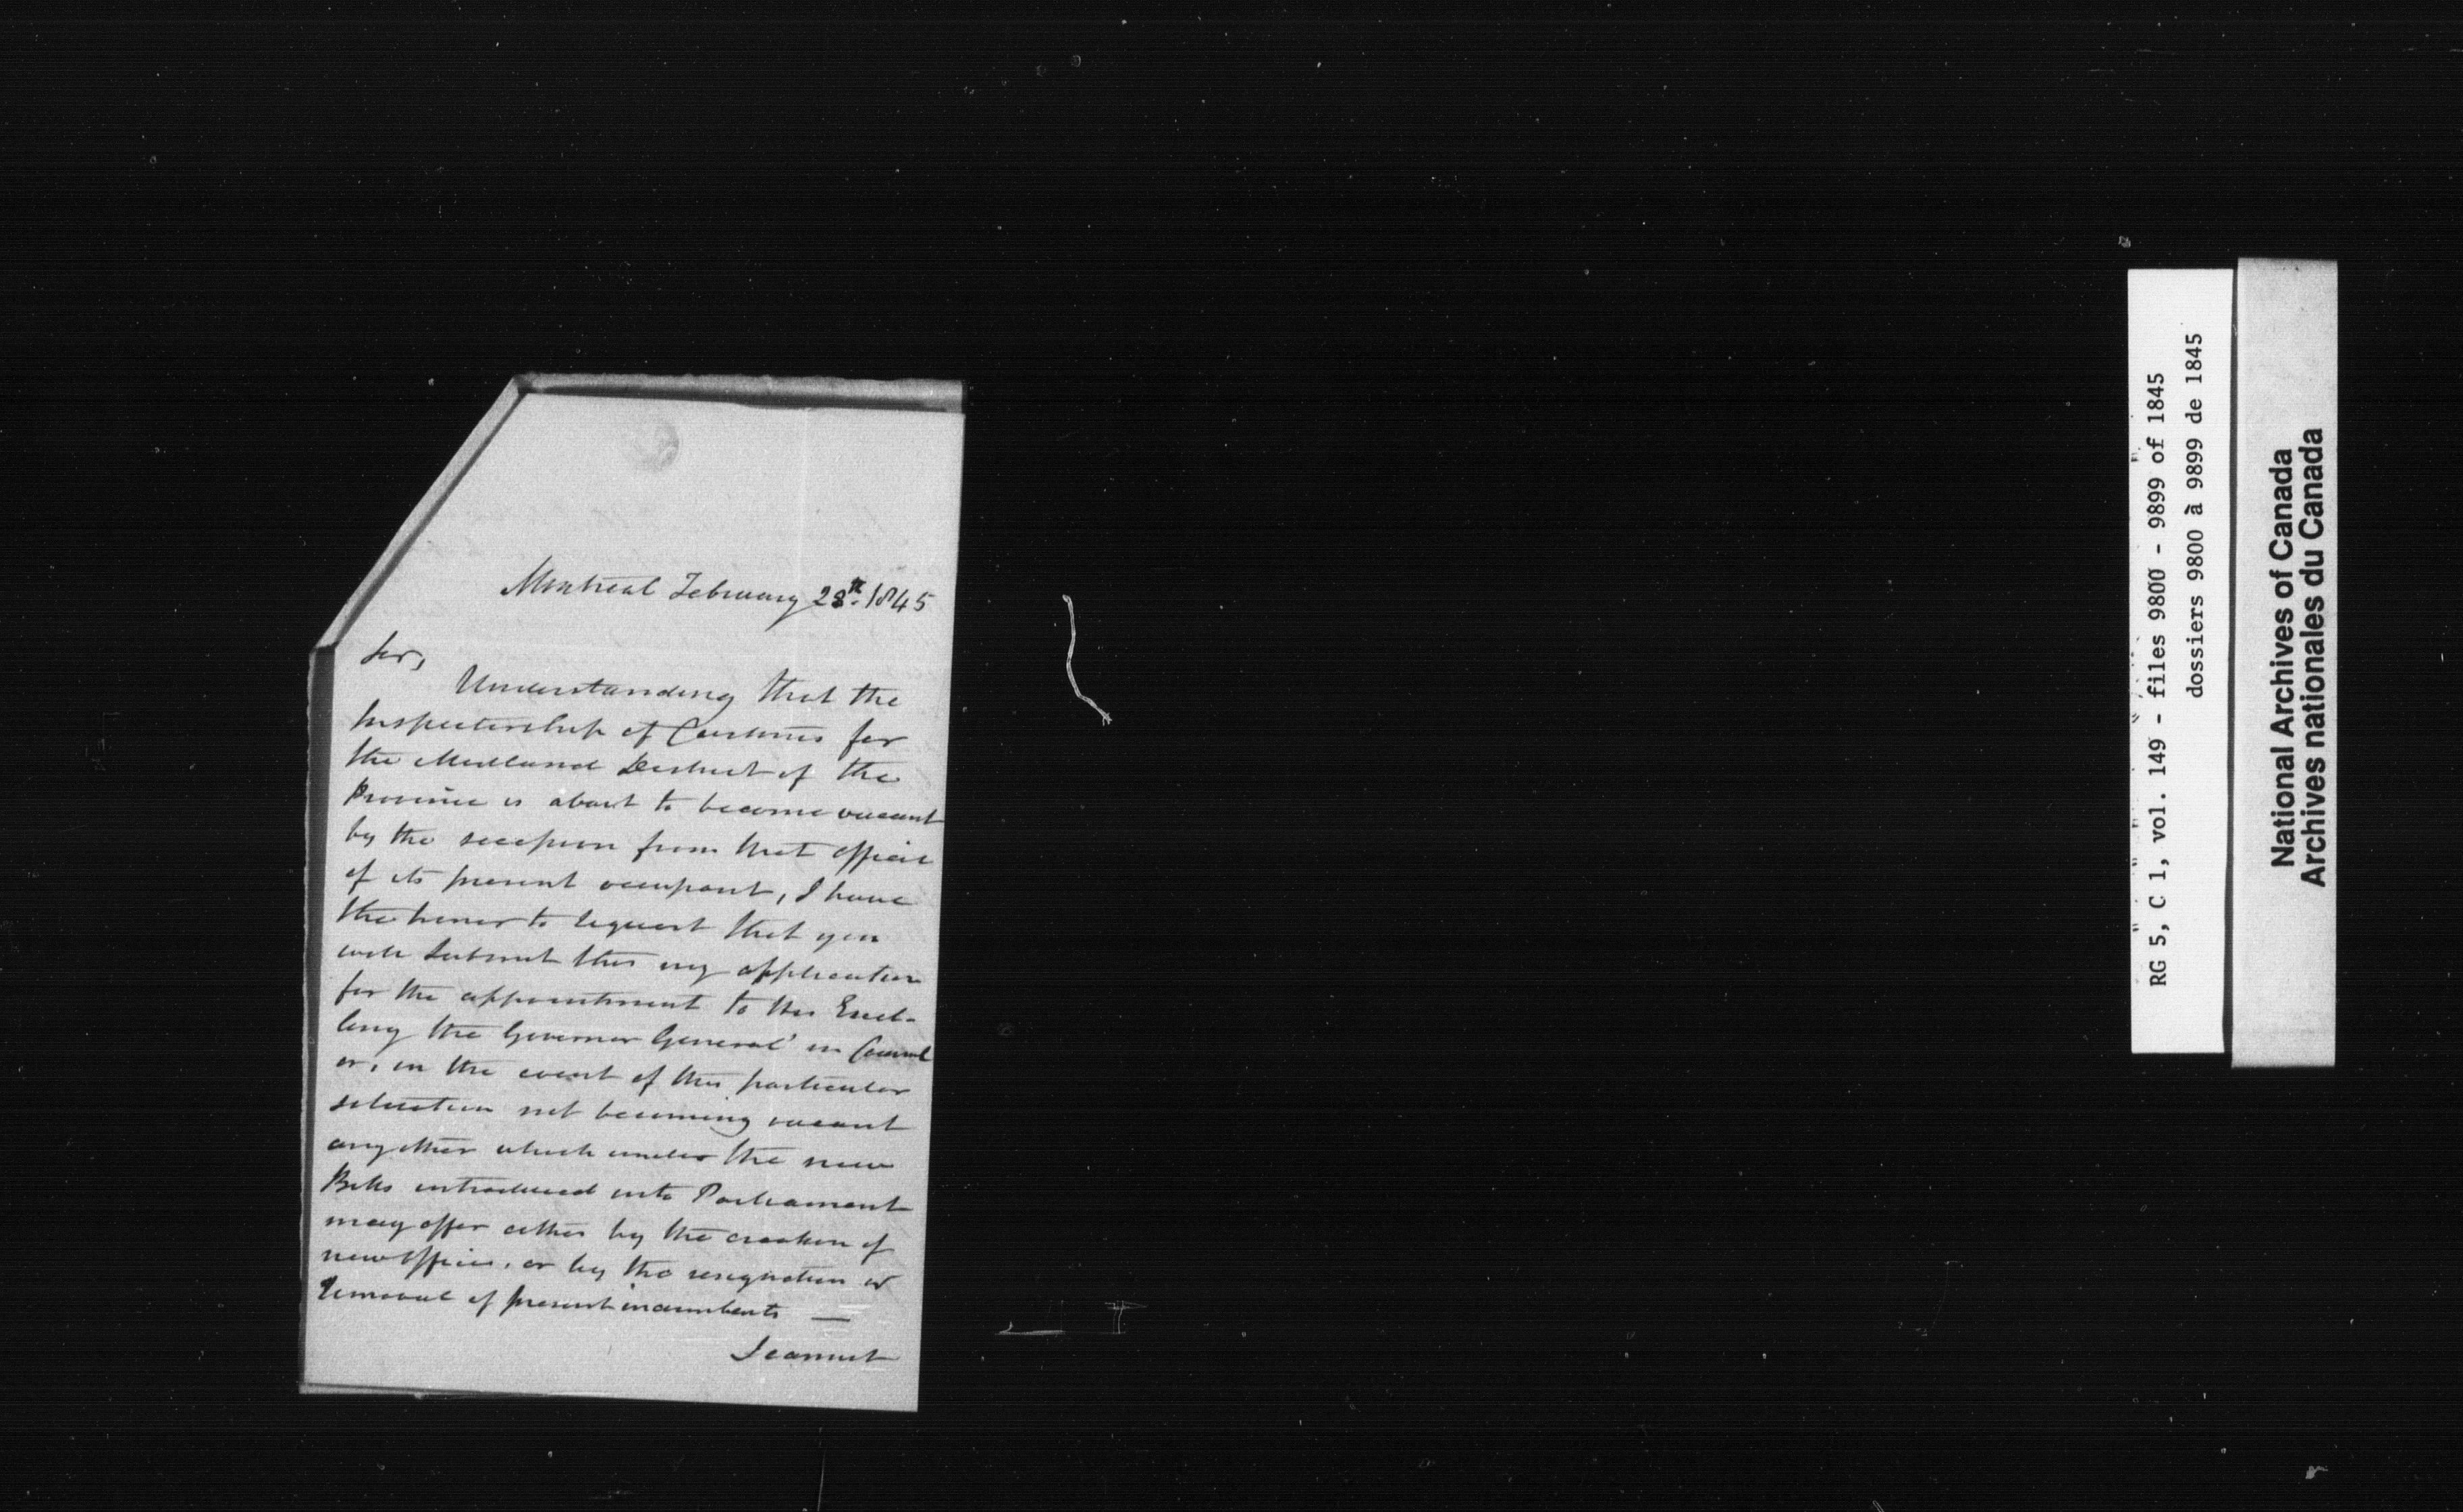 Montreal February 28th. 1845
Sir,
Understanding that the
Inspectorship of Customs for
the Midland District of the
Province is about to become vacant
by the secession from that office
of its present occupant, I have
the honor to request that you
will submit this my application
for the appointment to His Excel-
lency the Governor General in Council
or, in the event of this particular
situation not becoming vacant
any other which under the new
Bills introduced into Parliament
may offer either by the creation of
new offices, or by the resignation or
removal of present incumbents —
I cannot
RG 5, C 1, vol. 149 - files 9800 - 9899 of 1845
dossiers 9800 à 9899 de 1845
National Archives of Canada
Archives nationales du Canada